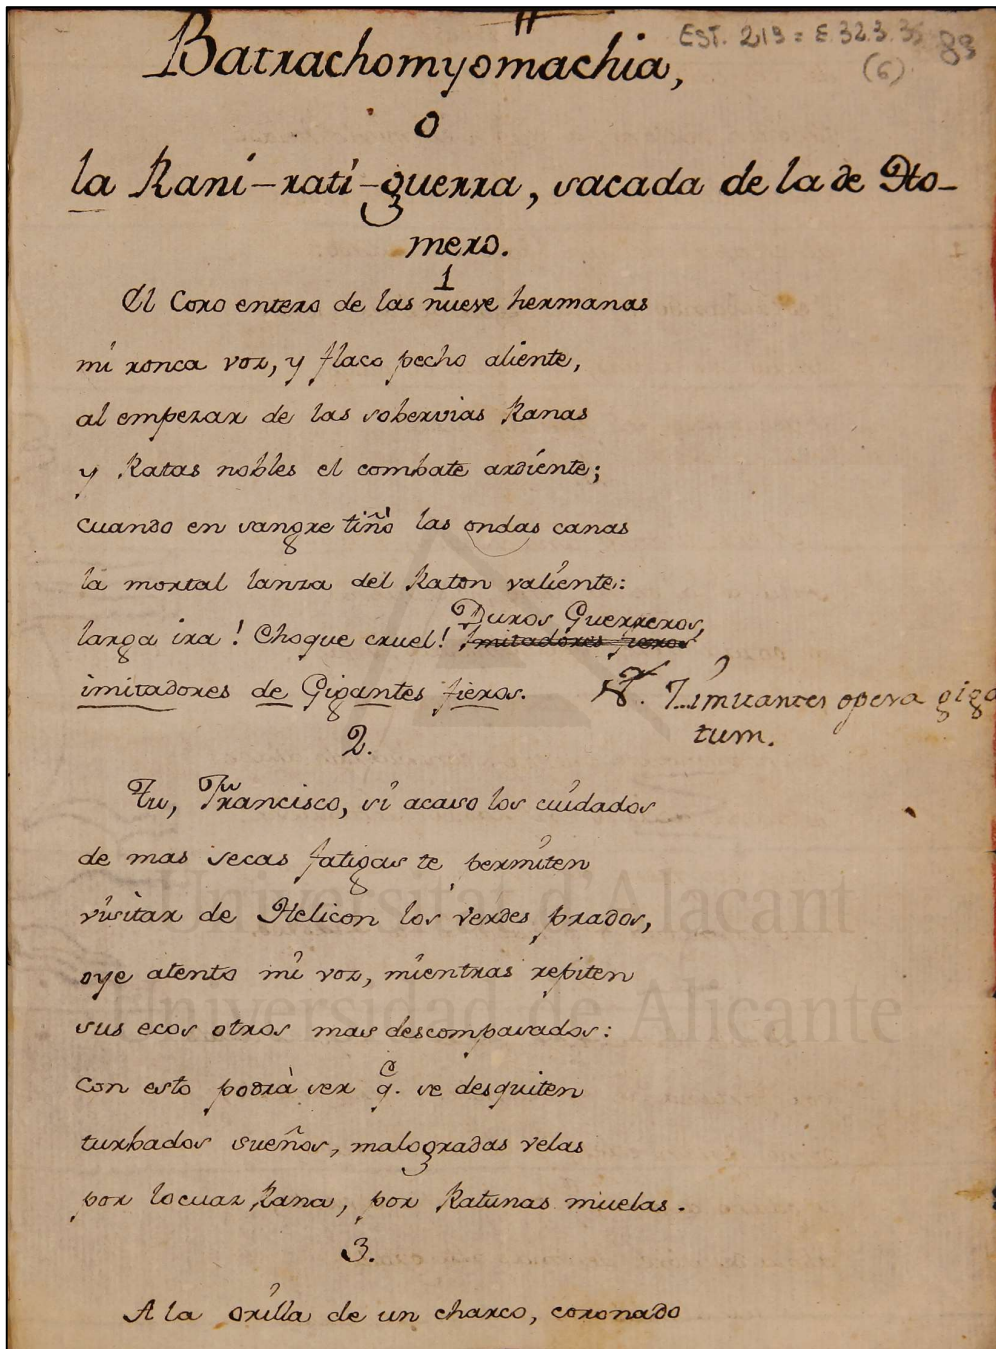 EST. 219 = E.32.3.35 89
(6)
Batrachomyomachia,
o
la Rani-rati-guerra, sacada de la de Ho-
mero.
1
El Coro entero de las nueve hermanas
mi ronca voz, y flaco pecho aliente,
al empezar de las sobervias Ranas
y Ratas nobles el combate ardiente;
cuando en sangre tiñó las ondas canas
la mortal lanza del Raton valiente:
Duros Guerreros,
larga ira! Choque cruel! imitadores fieros
imitadores de Gigantes fieros.
Imitantes opera giga
tum.
2.
Tu, Francisco, si acaso los cuidados
de mas secas fatigas te permiten
visitar de Helicon los verdes prados,
oye atento mi voz, mientras repiten
sus ecos otros mas descompasados:
con esto podrà ser q.e se desquiten
turbados sueños, malogradas velas
por locuaz Rana, por Ratunas muelas.
3.
A la orilla de un charco, coronado
Universitat d'Alacant
Universidad de Alicante